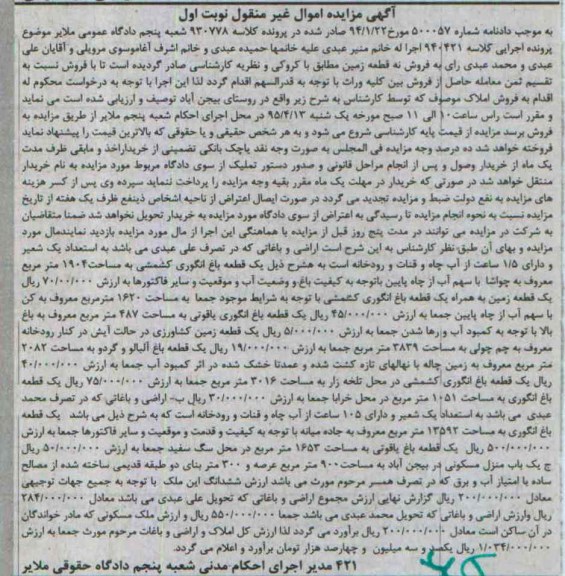 آگهی مزایده اموال غیر منقول نوبت اول
به موجب دادنامه شماره ۵۰۰۰۵۷ مورخ ۹۴/۱/۲۲ صادر شده در پرونده کلاسه ۹۳۰۷۷۸ شعبه پنجم دادگاه عمومی ملایر موضوع
پرونده اجرایی کلاسه ۹۴۰۴۲۱ اجرا له خانم منیر عبدی علیه خانمها حمیده عبدی و خانم اشرف آغاموسوی مرویلی و آقایان علی
عبدی و محمد عبدی رای به فروش نه قطعه زمین مطابق با کروکی و نظریه کارشناسی صادر گردیده است تا با فروش نسبت به
تقسیم ثمن معامله حاصل از فروش بین کلیه وراث با توجه به قدرالسهم اقدام گردد لذا این اجرا با توجه به درخواست محکوم له
اقدام به فروش املاک موصوف که توسط کارشناس به شرح زیر واقع در روستای بیجن آباد توصیف و ارزیابی شده است می نماید
و مقرر است راس ساعت ۱۰ الی ۱۱ صبح مورخه یک شنبه ۹۵/۴/۱۳ در محل اجرای احکام شعبه پنجم ملایر از طریق مزایده به
فروش برسد مزایده از قیمت پایه کارشناسی شروع می شود و به هر شخص حقیقی و یا حقوقی که بالاترین قیمت را پیشنهاد نماید
فروخته خواهد شد ده درصد وجه مزایده فی المجلس به صورت وجه نقد یاچک بانکی تضمینی از خریداراخذ و مابقی ظرف مدت
یک ماه از خریدار وصول و پس از انجام مراحل قانونی و صدور دستور تملیک از سوی دادگاه مربوط مورد مزایده به نام خریدار
منتقل خواهد شد در صورتی که خریدار در مهلت یک ماه مقرر بقیه وجه مزایده را پرداخت ننماید سپرده وی پس از کسر هزینه
های مزایده به نفع دولت ضبط و مزایده تجدید می گردد در صورت ایصال اعتراض از ناحیه اشخاص ذینفع ظرف یک هفته از تاریخ
مزایده نسبت به نحوه انجام مزایده تا رسیدگی به اعتراض از سوی دادگاه مورد مزایده به خریدار تحویل نخواهد شد ضمنا متقاضیان
به شرکت در مزایده می توانند در مدت پنج روز قبل از مزایده با هماهنگی این اجرا از مال مورد مزایده بازدید نمایندمال مورد
مزایده و بهای آن طبق نظر کارشناس به این شرح است اراضی و باغاتی که در تصرف علی عبدی می باشد به استعداد یک شعیر
و دارای ۱/۵ ساعت از آب چاه و قنات و رودخانه است به هشرح ذیل یک قطعه باغ انگوری کشمشی به مساحت ۱۹۰۴ متر مربع
معروف به چوانتا با سهم آب از چاه پایین باتوجه به کیفیت باغ و وضعیت آب و موقعیت و سایر فاکتورها به ارزش ۷۰/۰۰/۰۰۰ ریال
یک قطعه زمین به همراه یک قطعه باغ انگوری کشمشی با توجه به شرایط موجود جمعا به مساحت ۱۶۲۰ مترمربع معروف به کن
با سهم آب از چاه پایین جمعا به ارزش ۴۵/۰۰۰/۰۰۰ ریال یک قطعه باغ انگوری یاقوتی به مساحت ۴۸۷ متر مربع معروف به باغ
بالا با توجه به کمبود آب و رها شدن جمعا به ارزش ۵/۰۰۰/۰۰۰ ریال یک قطعه زمین کشاورزی در حالت آیش در کنار رودخانه
معروف به چم چولی به مساحت ۳۸۳۹ متر مربع جمعا به ارزش ۱۹/۰۰۰/۰۰۰ ریال یک قطعه باغ آلبالو و گردو به مساحت ۲۰۸۲
متر مربع معروف به زمین چاله با نهالهای تازه کشت شده و عمدتا خشک شده در اثر کمبود آب جمعا به ارزش ۴۰/۰۰۰/۰۰۰
ریال یک قطعه باغ انگوری کشمشی در محل تلخه زار به مساحت ۳۰۱۶ متر مربع جمعا به ارزش ۷۵/۰۰۰/۰۰۰ ریال یک قطعه
باغ انگوری به مساحت ۱۰۵۱ متر مربع در محل خرابا جمعا به ارزش ۳۰/۰۰۰/۰۰۰ ریال ب- اراضی و باغاتی که در تصرف محمد
عبدی می باشد به استعداد یک شعیر و دارای ۱۰۵ ساعت از آب چاه و قنات و رودخانه است که به شرح ذیل می باشد یک قطعه
باغ انگوری به مساحت ۱۳۵۹۲ متر مربع معروف به جاده میانه با توجه به کیفیت و قدمت و موقعیت و سایر فاکتورها جمعا به ارزش
۵۰۰/۰۰۰/۰۰۰ ریال یک قطعه باغ یاقوتی به مساحت ۱۶۵۳ متر مربع در محل سگ سفید جمعا به ارزش ۵۰/۰۰۰/۰۰۰ ریال
ج یک باب منزل مسکونی در بیجن آباد به مساحت ۹۰۰ متر مربع عرصه و ۳۰۰ متر بنای دو طبقه قدیمی ساخته شده از مصالح
ساده با امتیاز آب و برق که در تصرف همسر مرحوم مورث می باشد ارزش ششدانگ این ملک با توجه به جمیع جهات توجیهی
معادل ۲۰۰/۰۰۰/۰۰۰ ریال گزارش نهایی ارزش مجموع اراضی و باغاتی که تحویل علی عبدی می باشد معادل ۲۸۴/۰۰۰/۰۰۰
ریال وارزش اراضی و باغاتی که تحویل محمد عبدی می باشد جمعا ۵۵۰/۰۰۰/۰۰۰ ریال و ارزش ملک مسکونی که مادر خواندگان
در آن ساکن است معادل ۲۰۰/۰۰۰/۰۰۰ ریال برآورد می گردد لذا ارزش کل املاک و اراضی و باغات مرحوم مورث جمعا به ارزش
۱/۰۳۴/۰۰۰/۰۰۰ ریال یکصد و سه میلیون و چهارصد هزار تومان برآورد و اعلام می گردد.
۴۲۱ مدیر اجرای احکام مدنی شعبه پنجم دادگاه حقوقی ملایر